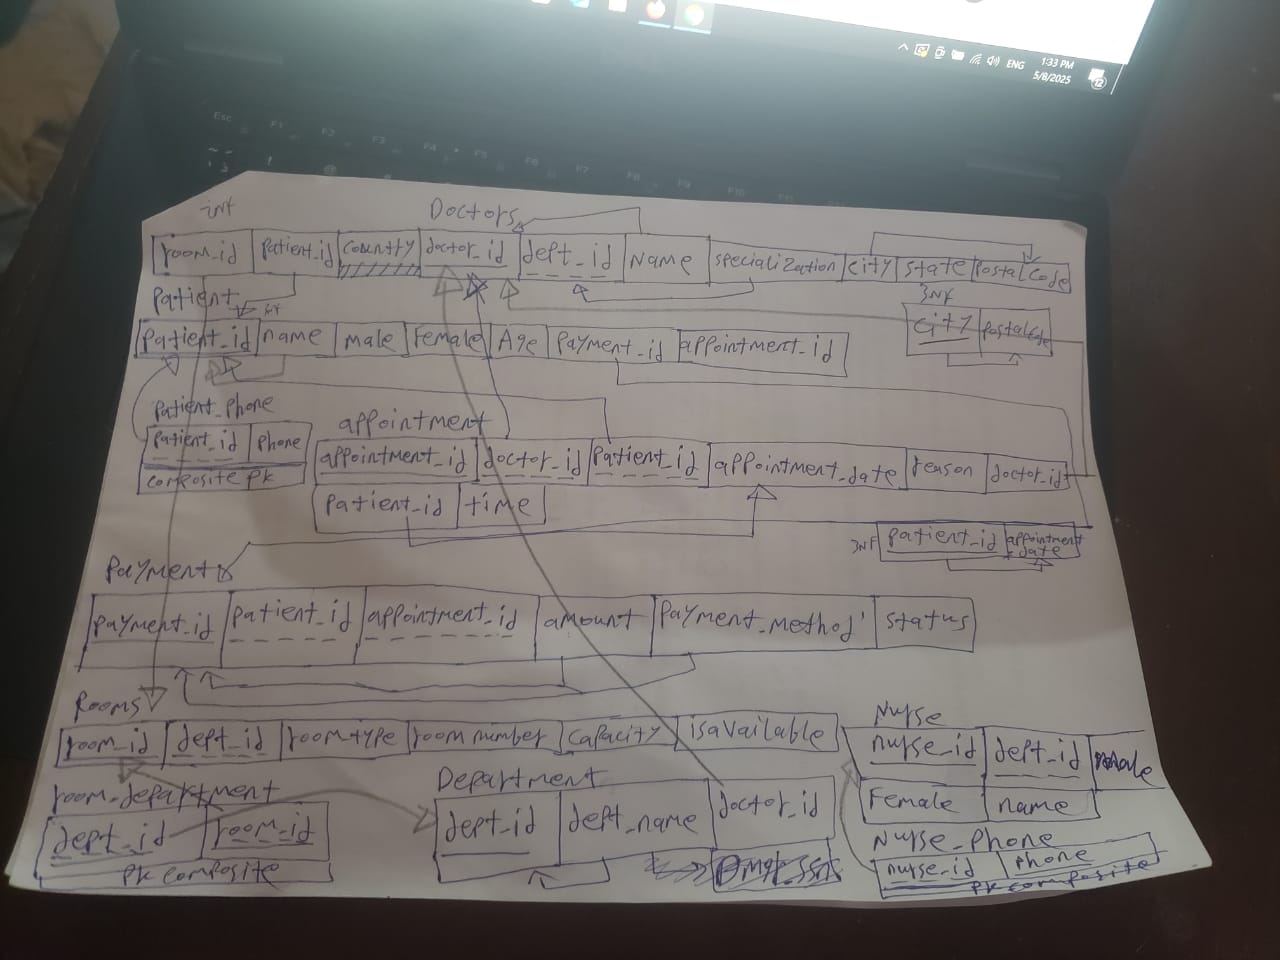 ENG 1:33 PM
5/8/2025
12
Esc F1 F2 F3 F4 F5 F6 F7 F8 F9 F10
int Doctors
room_id patient_id country doctor_id dept_id Name specialization city state PostalCode
Patient 3NF
city postalcode
patient_id name male Female Age Payment_id appointment_id
patient_phone
patient_id phone
composite pk
appointment
appointment_id doctor_id patient_id appointment_date reason doctor_id
patient_id time
3NF patient_id appointment
date
Payment
payment_id patient_id appointment_id amount Payment_method status
Rooms
room_id dept_id room type room number capacity isavailable
Nurse
nurse_id dept_id male
Female name
room_department
dept_id room_id
PK composite
Department
dept_id dept_name doctor_id
Nurse_Phone
nurse_id phone
PK composite